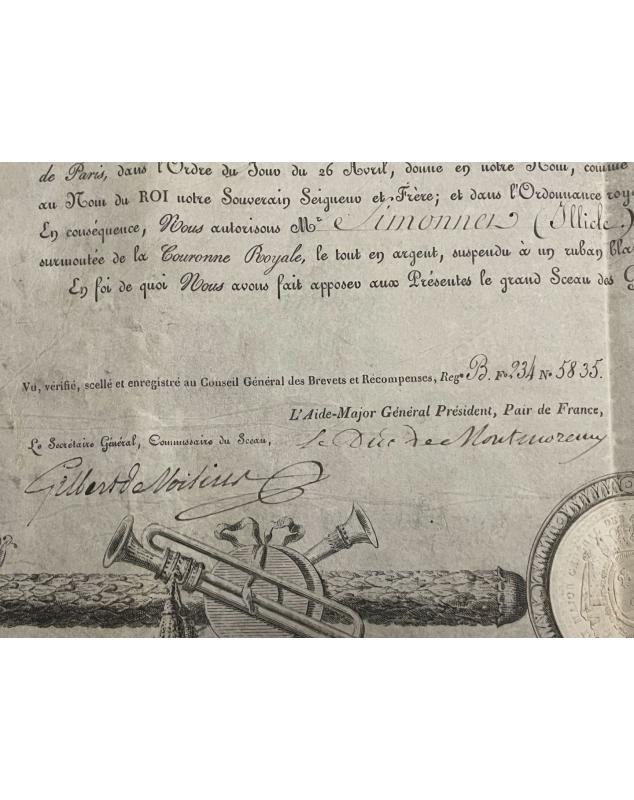 de Paris, dans l'Ordre du Jour du 26 Avril, donné en notre Nom, comme
au Nom du ROI notre Souverain Seigneur et Frère; et dans l'Ordonnance roya
En conséquence, Nous autorisons Mr. Simonnet (Illide.)
surmontée de la Couronne Royale, le tout en argent, suspendu à un ruban bla
En foi de quoi Nous avons fait apposer aux Présentes le grand Sceau des G
Vu, vérifié, scellé et enregistré au Conseil Général des Brevets et Récompenses, Regre B. Fo. 234 No 5835.
L'Aide-Major Général Président, Pair de France,
Le Secrétaire Général, Commissaire du Sceau,
le Duc de Montmorency
Gilbert de Voisins